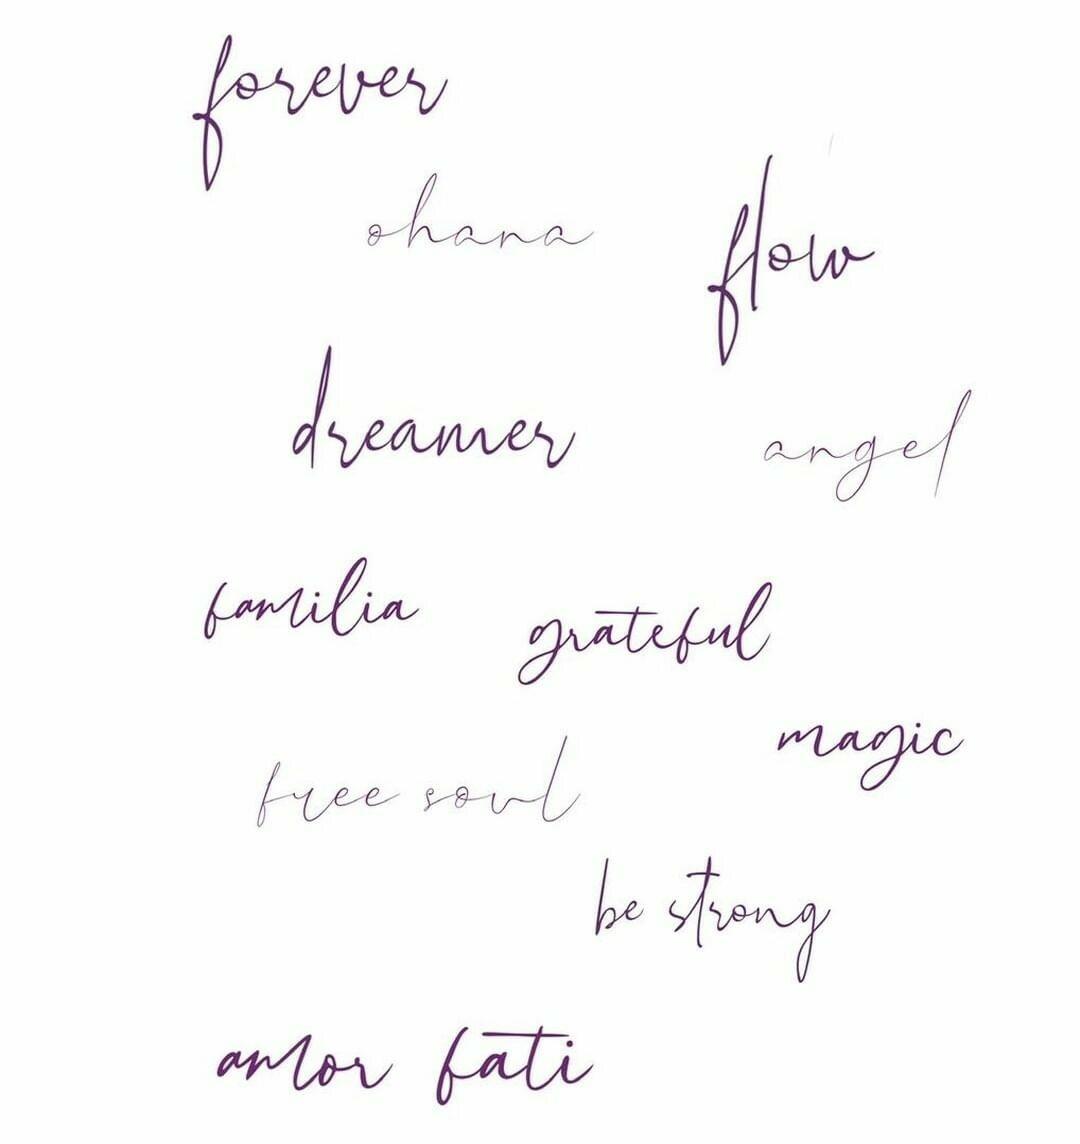 forever
ohana
flow
dreamer
angel
familia
grateful
magic
free soul
be strong
amor fati